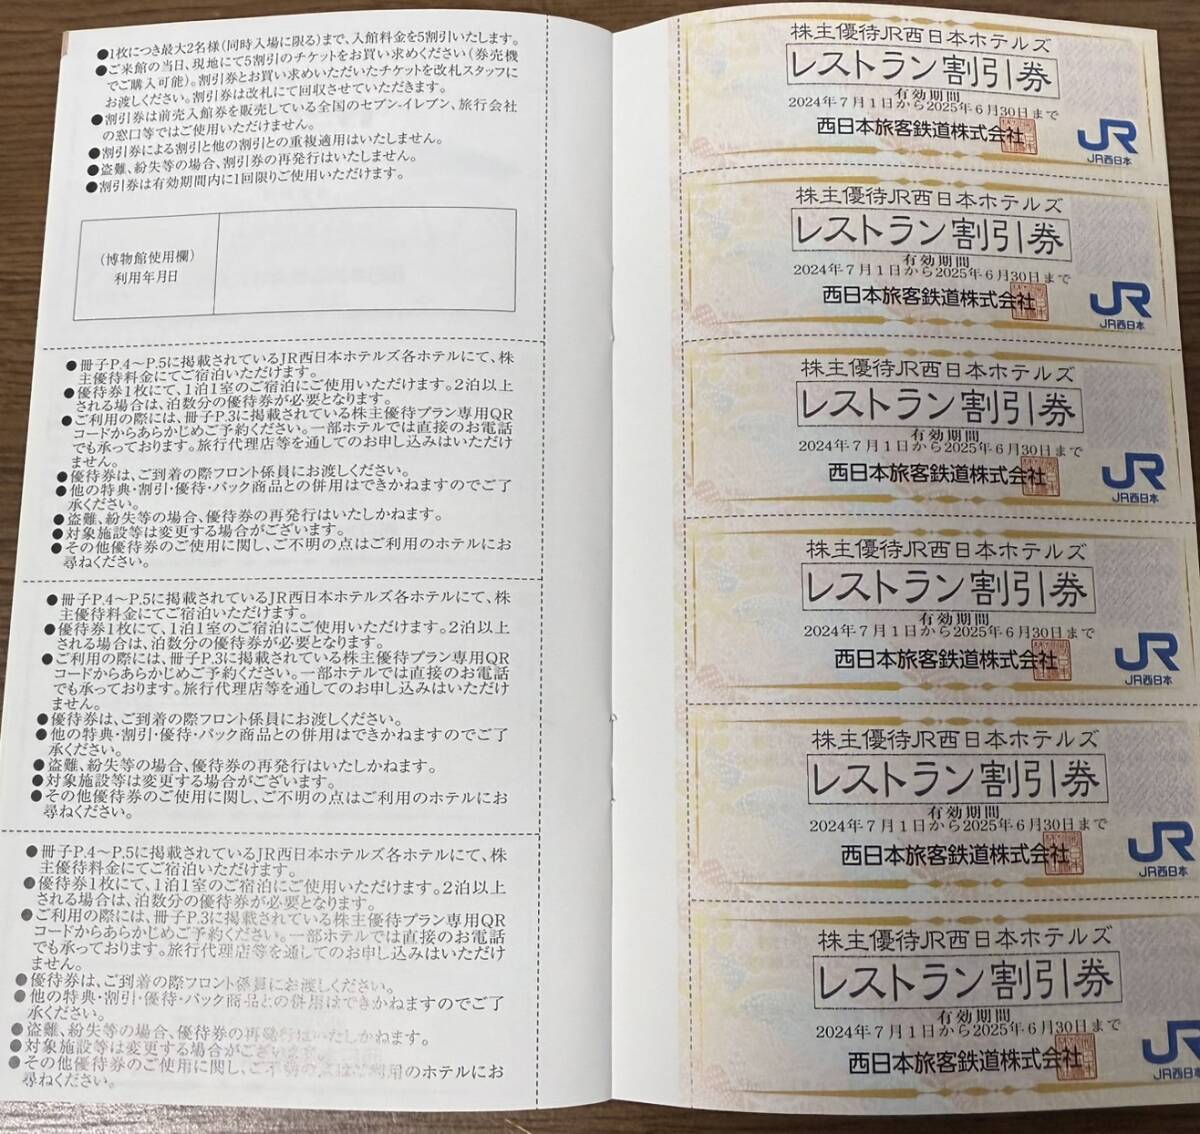 ●1枚につき最大2名様(同時入場に限る)まで、入館料金を5割引いたします。
●ご来館の当日、現地にて5割引のチケットをお買い求めください(券売機
でご購入可能)。割引券とお買い求めいただいたチケットを改札スタッフに
お渡しください。割引券は改札にて回収させていただきます。
●割引券は前売入館券を販売している全国のセブン-イレブン、旅行会社
の窓口等ではご使用いただけません。
●割引券による割引と他の割引との重複適用はいたしません。
●盗難、紛失等の場合、割引券の再発行はいたしません。
●割引券は有効期間内に1回限りご使用いただけます。
(博物館使用欄)
利用年月日
●冊子P.4～P.5に掲載されているJR西日本ホテルズ各ホテルにて、株
主優待料金にてご宿泊いただけます。
●優待券1枚にて、1泊1室のご宿泊にご使用いただけます。2泊以上
される場合は、泊数分の優待券が必要となります。
●ご利用の際には、冊子P.3に掲載されている株主優待プラン専用QR
コードからあらかじめご予約ください。一部ホテルでは直接のお電話
でも承っております。旅行代理店等を通してのお申し込みはいただけ
ません。
●優待券は、ご到着の際フロント係員にお渡しください。
●他の特典・割引・優待・パック商品との併用はできかねますのでご了
承ください。
●盗難、紛失等の場合、優待券の再発行はいたしかねます。
●対象施設等は変更する場合がございます。
●その他優待券のご使用に関し、ご不明の点はご利用のホテルにお
尋ねください。
●冊子P.4～P.5に掲載されているJR西日本ホテルズ各ホテルにて、株
主優待料金にてご宿泊いただけます。
●優待券1枚にて、1泊1室のご宿泊にご使用いただけます。2泊以上
される場合は、泊数分の優待券が必要となります。
●ご利用の際には、冊子P.3に掲載されている株主優待プラン専用QR
コードからあらかじめご予約ください。一部ホテルでは直接のお電話
でも承っております。旅行代理店等を通してのお申し込みはいただけ
ません。
●優待券は、ご到着の際フロント係員にお渡しください。
●他の特典・割引・優待・パック商品との併用はできかねますのでご了
承ください。
●盗難、紛失等の場合、優待券の再発行はいたしかねます。
●対象施設等は変更する場合がございます。
●その他優待券のご使用に関し、ご不明の点はご利用のホテルにお
尋ねください。
●冊子P.4～P.5に掲載されているJR西日本ホテルズ各ホテルにて、株
主優待料金にてご宿泊いただけます。
●優待券1枚にて、1泊1室のご宿泊にご使用いただけます。2泊以上
される場合は、泊数分の優待券が必要となります。
●ご利用の際には、冊子P.3に掲載されている株主優待プラン専用QR
コードからあらかじめご予約ください。一部ホテルでは直接のお電話
でも承っております。旅行代理店等を通してのお申し込みはいただけ
ません。
●優待券は、ご到着の際フロント係員にお渡しください。
●他の特典・割引・優待・パック商品との併用はできかねますのでご了
承ください。
●盗難、紛失等の場合、優待券の再発行はいたしかねます。
●対象施設等は変更する場合がございます。
●その他優待券のご使用に関し、ご不明の点はご利用のホテルにお
尋ねください。
株主優待JR西日本ホテルズ
レストラン割引券
有効期間
2024年7月1日から2025年6月30日まで
西日本旅客鉄道株式会社
JR
JR西日本
株主優待JR西日本ホテルズ
レストラン割引券
有効期間
2024年7月1日から2025年6月30日まで
西日本旅客鉄道株式会社
JR
JR西日本
株主優待JR西日本ホテルズ
レストラン割引券
有効期間
2024年7月1日から2025年6月30日まで
西日本旅客鉄道株式会社
JR
JR西日本
株主優待JR西日本ホテルズ
レストラン割引券
有効期間
2024年7月1日から2025年6月30日まで
西日本旅客鉄道株式会社
JR
JR西日本
株主優待JR西日本ホテルズ
レストラン割引券
有効期間
2024年7月1日から2025年6月30日まで
西日本旅客鉄道株式会社
JR
JR西日本
株主優待JR西日本ホテルズ
レストラン割引券
有効期間
2024年7月1日から2025年6月30日まで
西日本旅客鉄道株式会社
JR
JR西日本